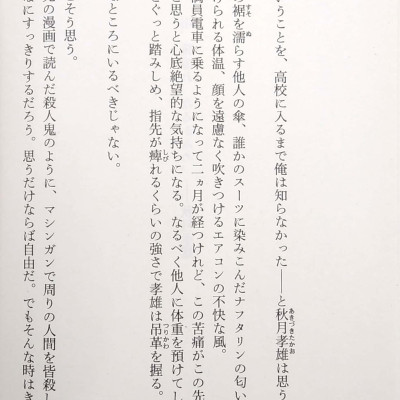 うことを、高校に入るまで俺は知らなかった――と秋月孝雄は思う
裾を濡らす他人の傘、誰かのスーツに染みこんだナフタリンの匂い
けられる体温、顔を遠慮なく吹きつけるエアコンの不快な風。
満員電車に乗るようになって二ヵ月が経つけれど、この苦痛がこの先
と思うと心底絶望的な気持ちになる。なるべく他人に体重を預けてし
ぐっと踏みしめ、指先が痺れるくらいの強さで孝雄は吊革を握る。
なところにいるべきじゃない。
そう思う。
の漫画で読んだ殺人鬼のように、マシンガンで周りの人間を皆殺し
にすっきりするだろう。思うだけならば自由だ。でもそんな時はき